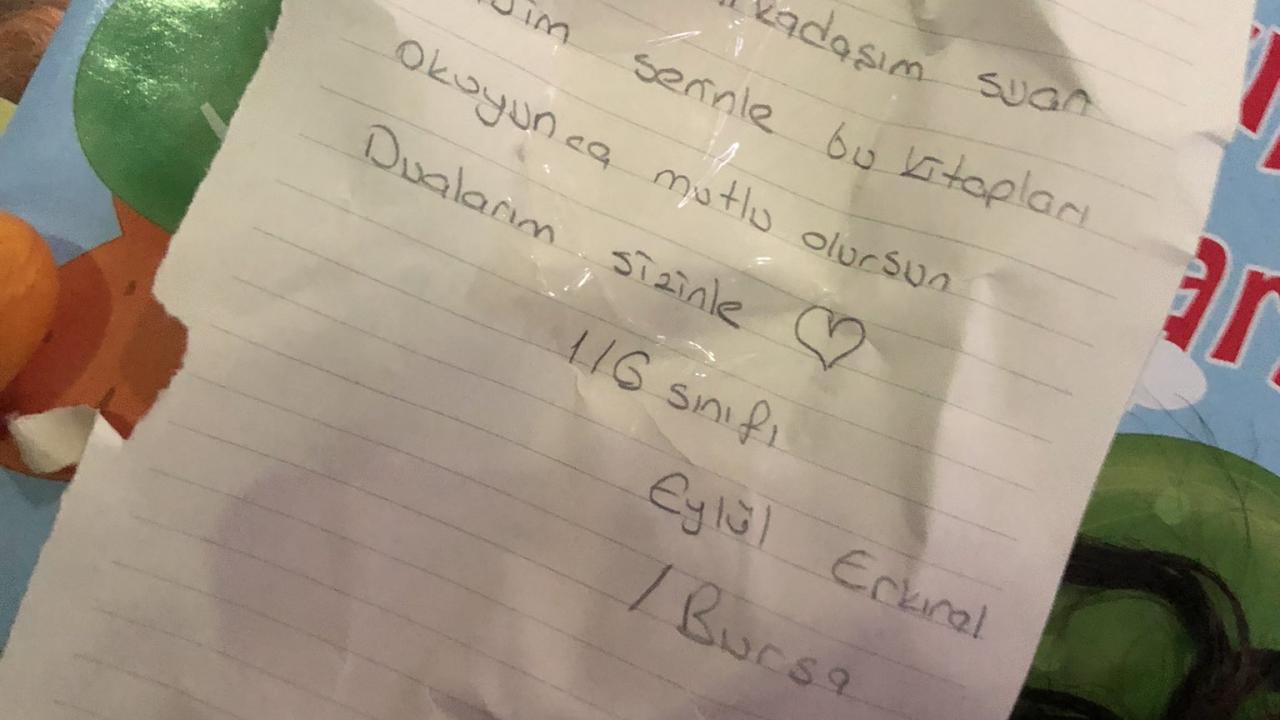 şuan
seninle bu kitapları
Okuyunca mutlu olursun
Dualarım sizinle
1/G sınıfı
Eylül Erkınal
/ Bursa